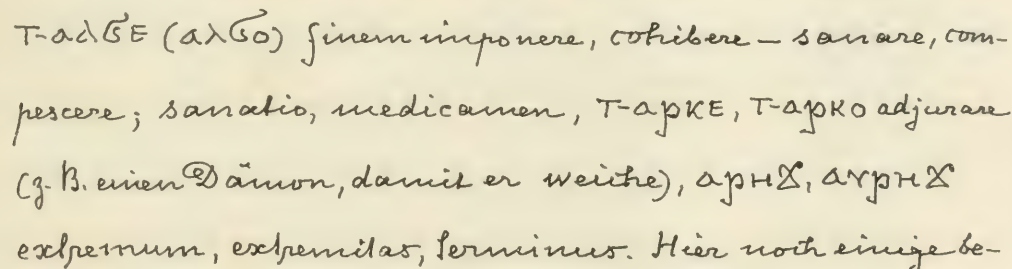 ⲧ-ⲁⲗϭⲉ (ⲁⲗϭⲟ) finem imponere, cohibere – sanare, com-
pescere; sanatio, medicamen, ⲧ-ⲁⲣⲕⲉ, ⲧ-ⲁⲣⲕⲟ adjurare
(z. B. einen Dämon, damit er weiche), ⲁⲣⲏϫ, ⲁⲩⲣⲏϫ
extremum, extremitas, terminus. Hier noch einige be-